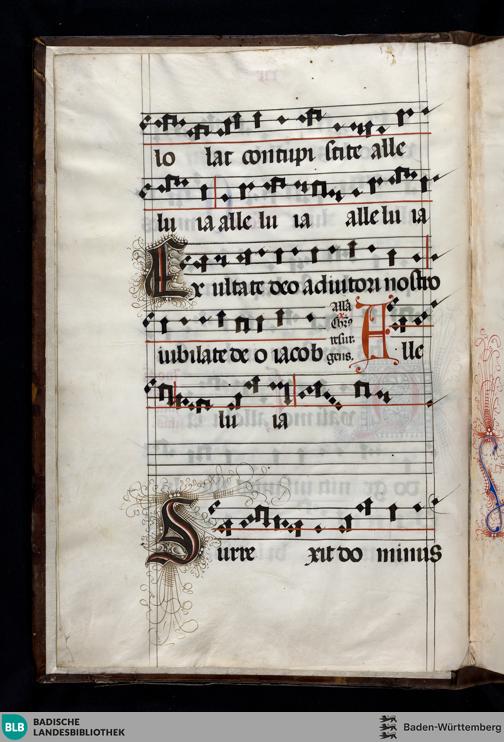 lo lac concupi scite alle
lu ia alle lu ia alle lu ia
Ex ultate deo adiutori nostro
iubilate de o iacob
alla
resur
gens.
Alle
lu ia
Surre xit do minus
BLB BADISCHE
LANDESBIBLIOTHEK
Baden-Württemberg